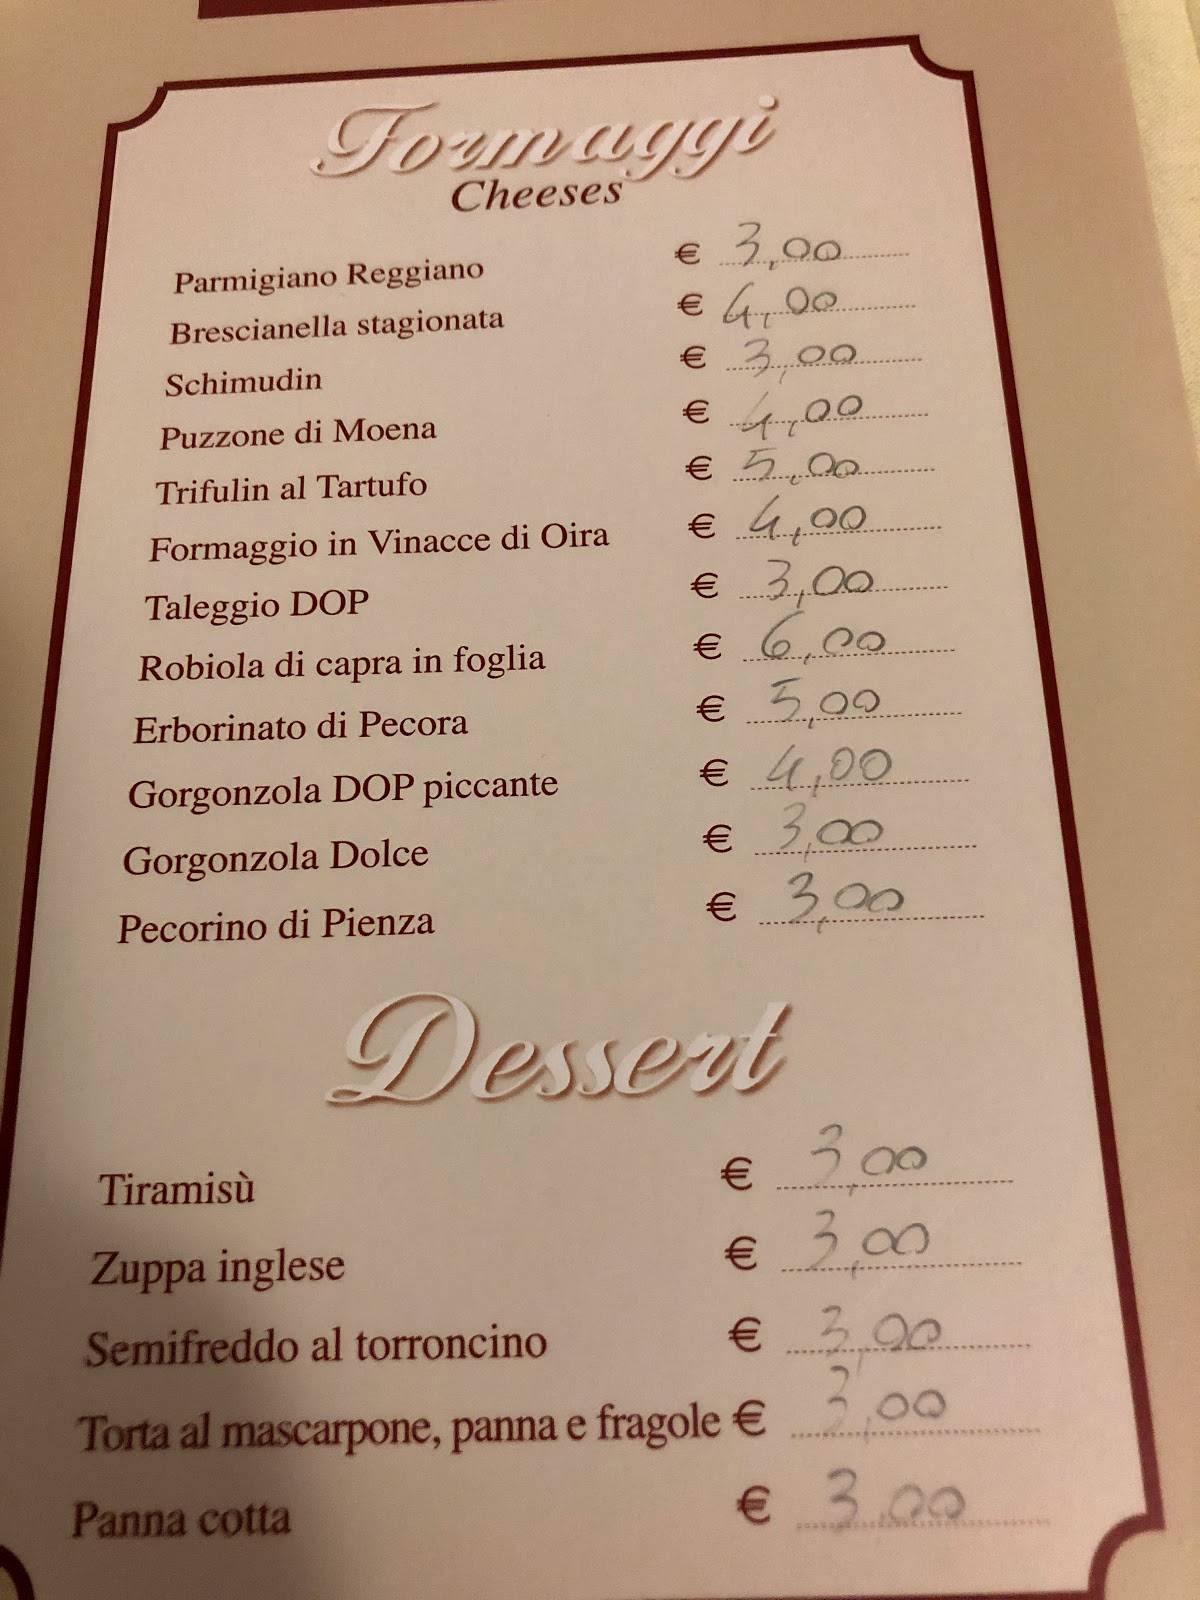 Formaggi
Cheeses
Parmigiano Reggiano € 3,00
Brescianella stagionata € 4,00
Schimudin € 3,00
Puzzone di Moena € 4,00
Trifulin al Tartufo € 5,00
Formaggio in Vinacce di Oira € 4,00
Taleggio DOP € 3,00
Robiola di capra in foglia € 6,00
Erborinato di Pecora € 5,00
Gorgonzola DOP piccante € 4,00
Gorgonzola Dolce € 3,00
Pecorino di Pienza € 3,00
Dessert
Tiramisù € 3,00
Zuppa inglese € 3,00
Semifreddo al torroncino € 3,00
Torta al mascarpone, panna e fragole € 3,00
Panna cotta € 3,00